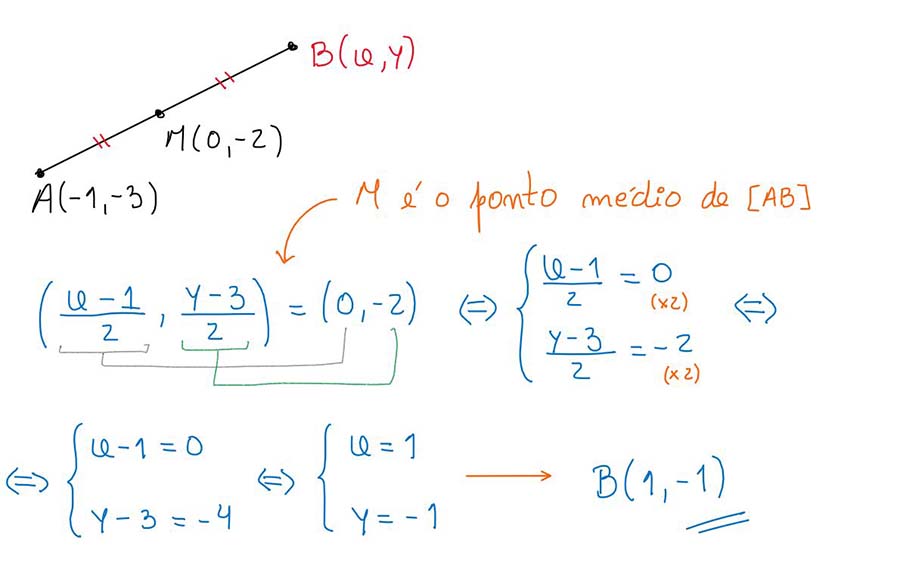 B(x,y)
M(0,-2)
A(-1,-3)
M é o ponto médio de [AB]
(x-1/2, y-3/2) = (0,-2) ⇔ { x-1/2 = 0 (×2) ⇔
y-3/2 = -2 (×2)
⇔ { x-1 = 0 ⇔ { x = 1 → B(1,-1)
y-3 = -4 y = -1